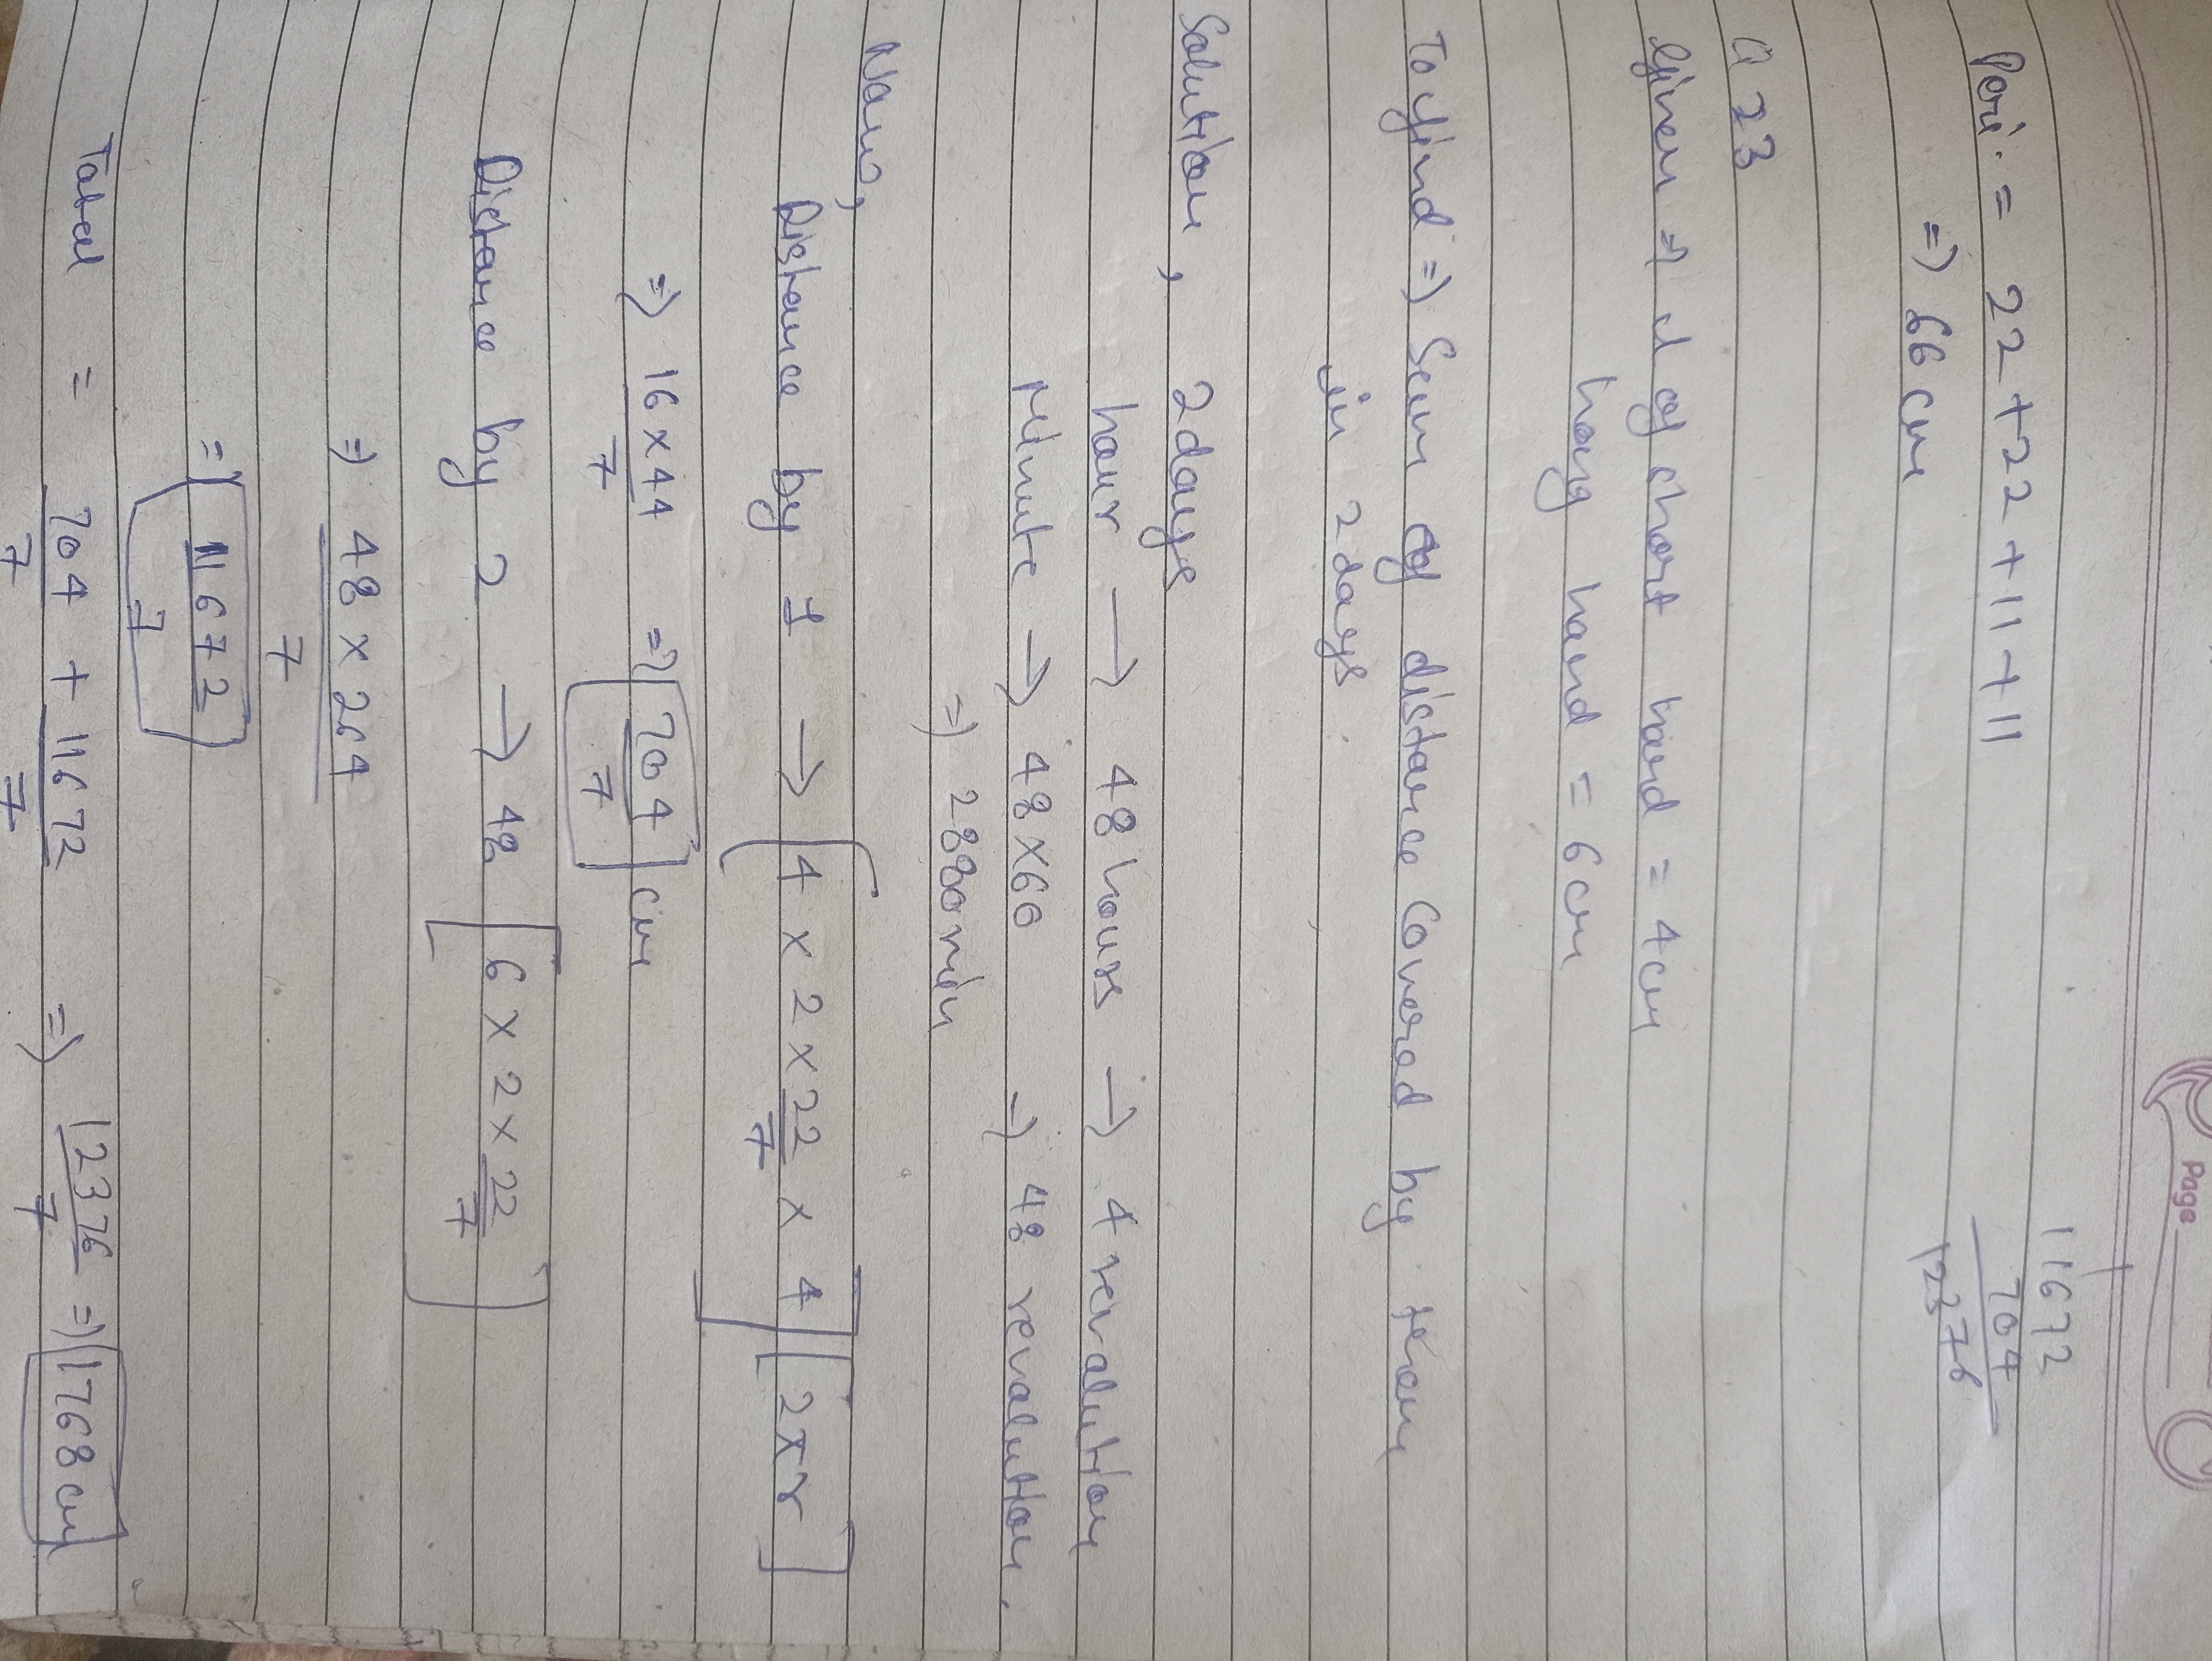 Page
Peri. = 22 + 22 + 11 + 11
=> 66 cm
11672
704
12376
Q 23
Given => l of short hand = 4cm
long hand = 6cm
To find => Sum of distance Covered by them
in 2 days.
Solution, 2days
hour → 48 hours → 4 revolution
Minute → 48 × 60 => 48 revolution.
=> 2880 min
Now,
Distance by 1 → [4 × 2 × 22/7 × 4] [2πr]
=> 16 × 44/7 => 704/7 cm
Distance by 2 → 48 [6 × 2 × 22/7]
=> 48 × 264/7
=> 11672/7
Total = 704/7 + 11672/7 => 12376/7 => 1768 cm